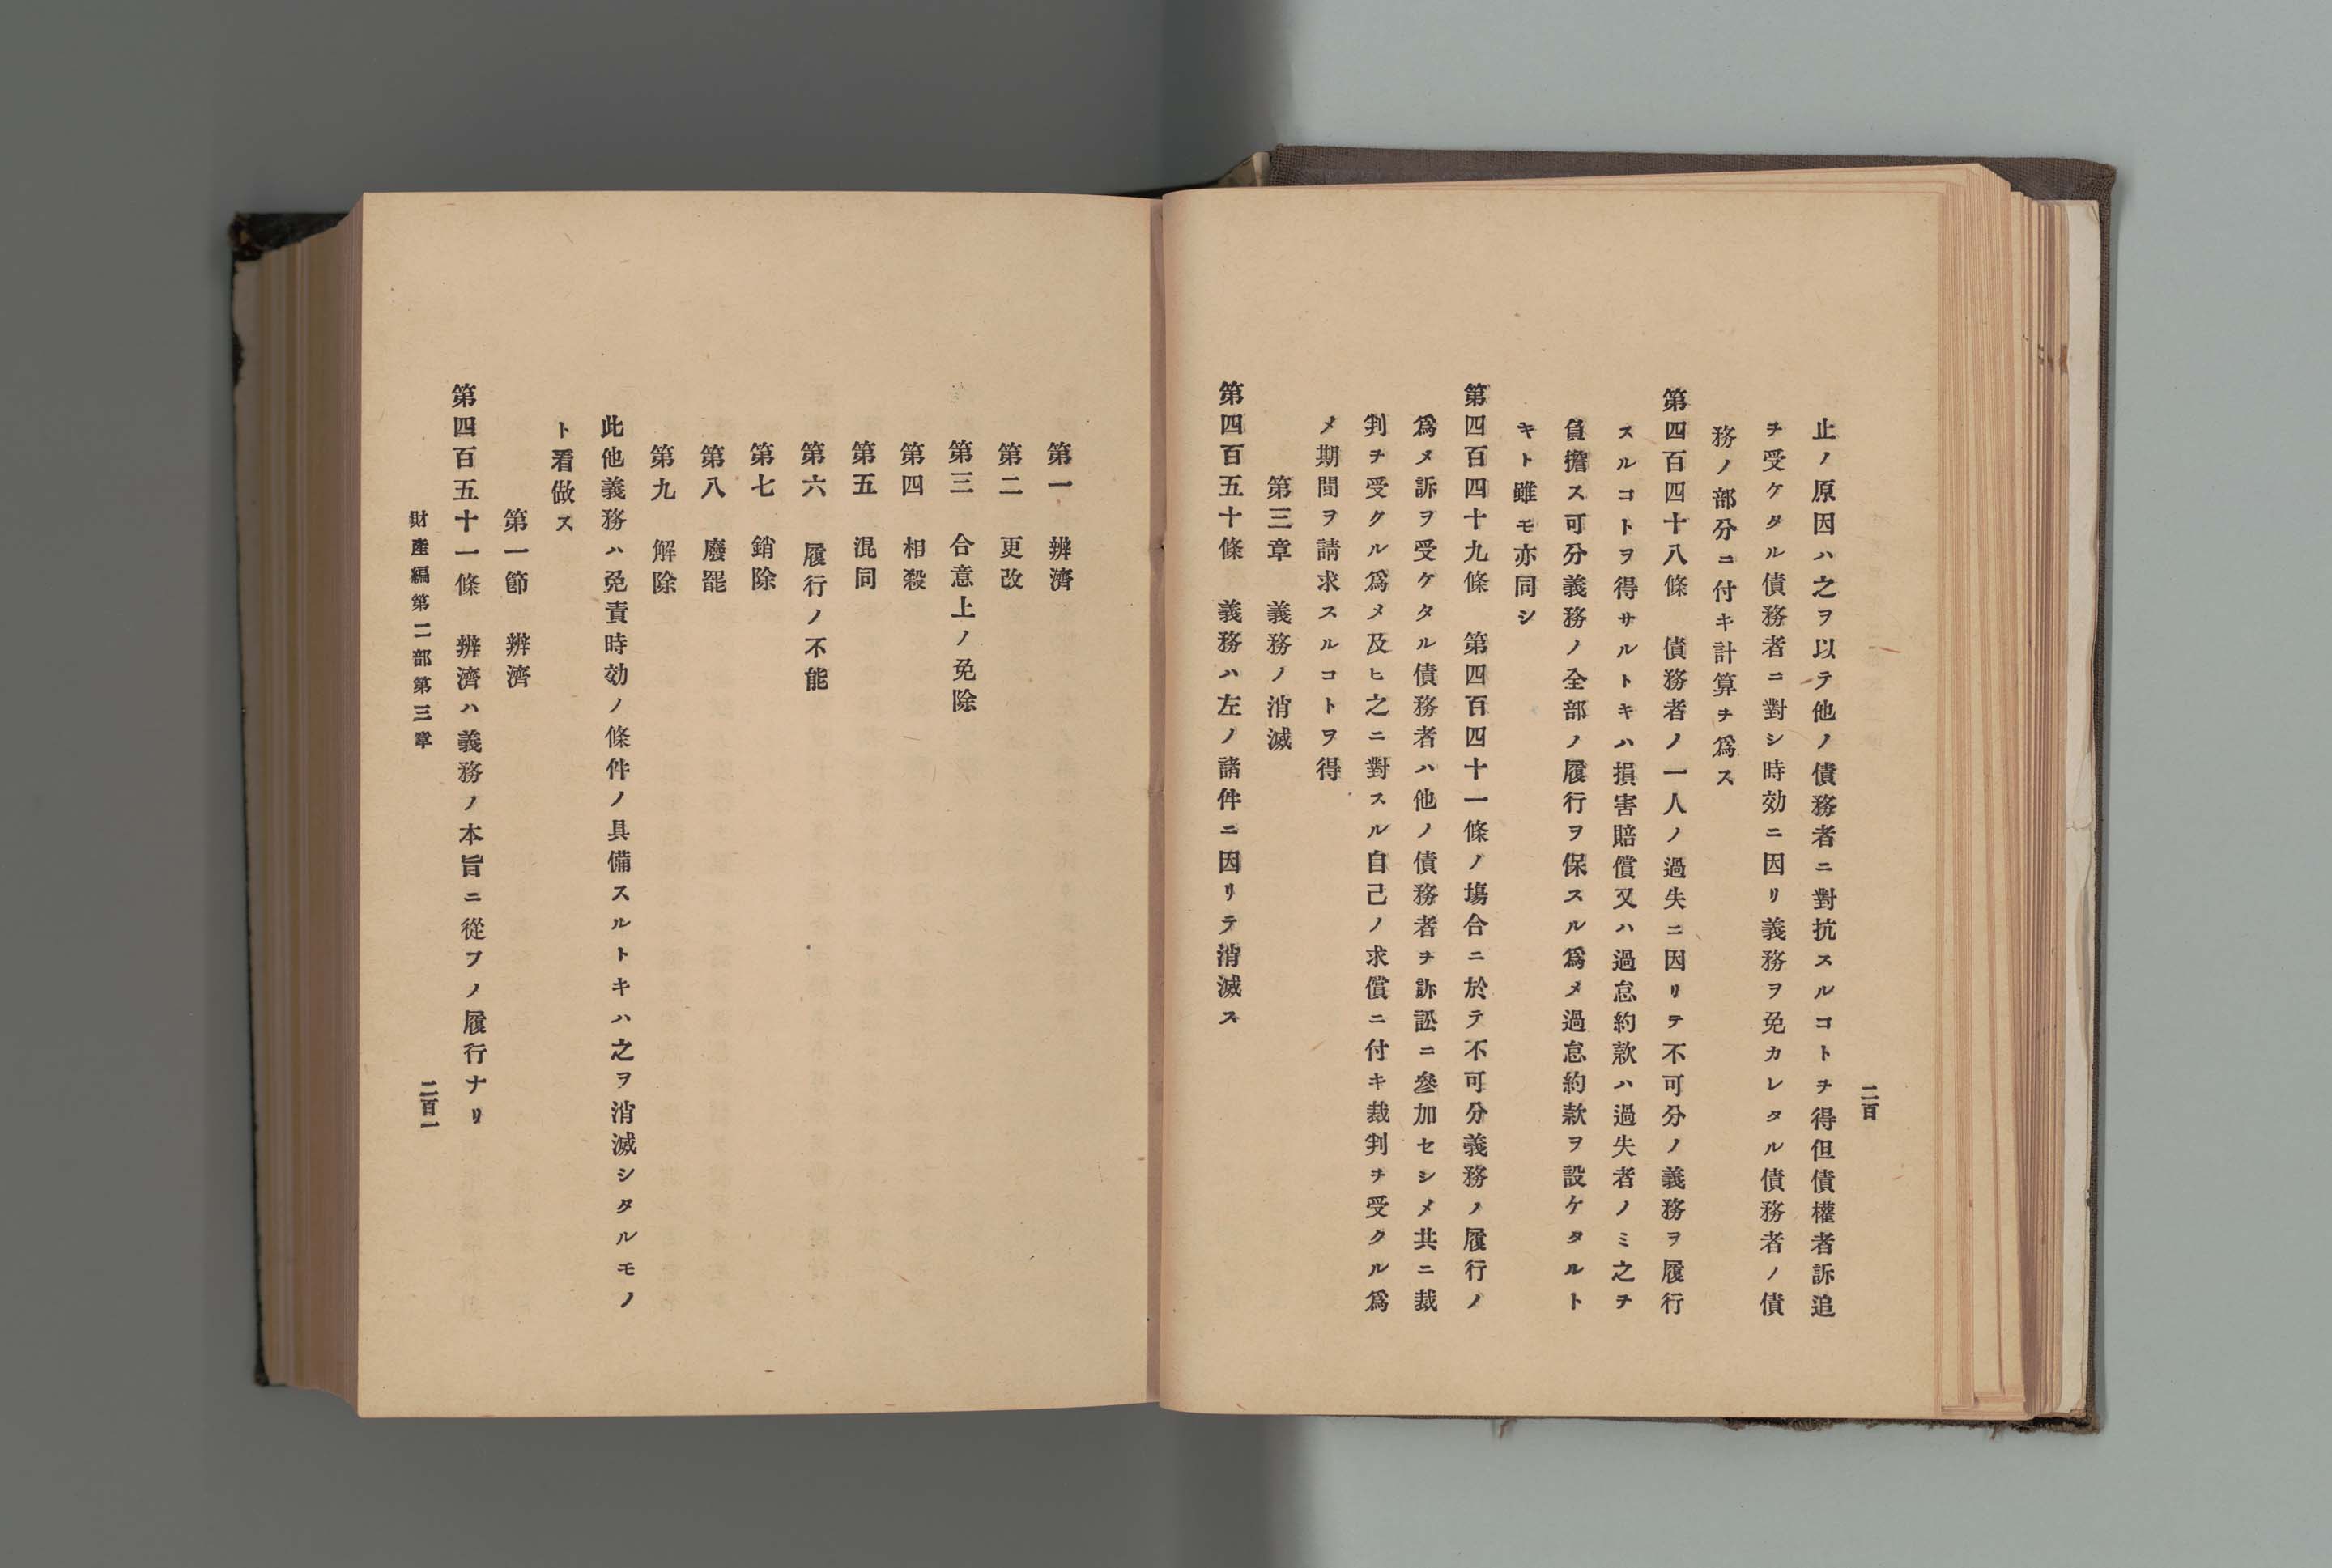 二百
止ノ原因ハ之ヲ以テ他ノ債務者ニ對抗スルコトヲ得但債權者訴追
ヲ受ケタル債務者ニ對シ時効ニ因リ義務ヲ免カレタル債務者ノ債
務ノ部分ニ付キ計算ヲ爲ス
第四百四十八條　債務者ノ一人ノ過失ニ因リテ不可分ノ義務ヲ履行
スルコトヲ得サルトキハ損害賠償又ハ過怠約款ハ過失者ノミ之ヲ
負擔ス可分義務ノ全部ノ履行ヲ保スル爲メ過怠約款ヲ設ケタルト
キト雖モ亦同シ
第四百四十九條　第四百四十一條ノ塲合ニ於テ不可分義務ノ履行ノ
爲メ訴ヲ受ケタル債務者ハ他ノ債務者ヲ訴訟ニ參加セシメ共ニ裁
判ヲ受クル爲メ及ヒ之ニ對スル自己ノ求償ニ付キ裁判ヲ受クル爲
メ期間ヲ請求スルコトヲ得
第三章　義務ノ消滅
第四百五十條　義務ハ左ノ諸件ニ因リテ消滅ス
第一　辨濟
第二　更改
第三　合意上ノ免除
第四　相殺
第五　混同
第六　履行ノ不能
第七　銷除
第八　廢罷
第九　解除
此他義務ハ免責時効ノ條件ノ具備スルトキハ之ヲ消滅シタルモノ
ト看做ス
第一節　辨濟
第四百五十一條　辨濟ハ義務ノ本旨ニ從フノ履行ナリ
財產編第二部第三章
二百一